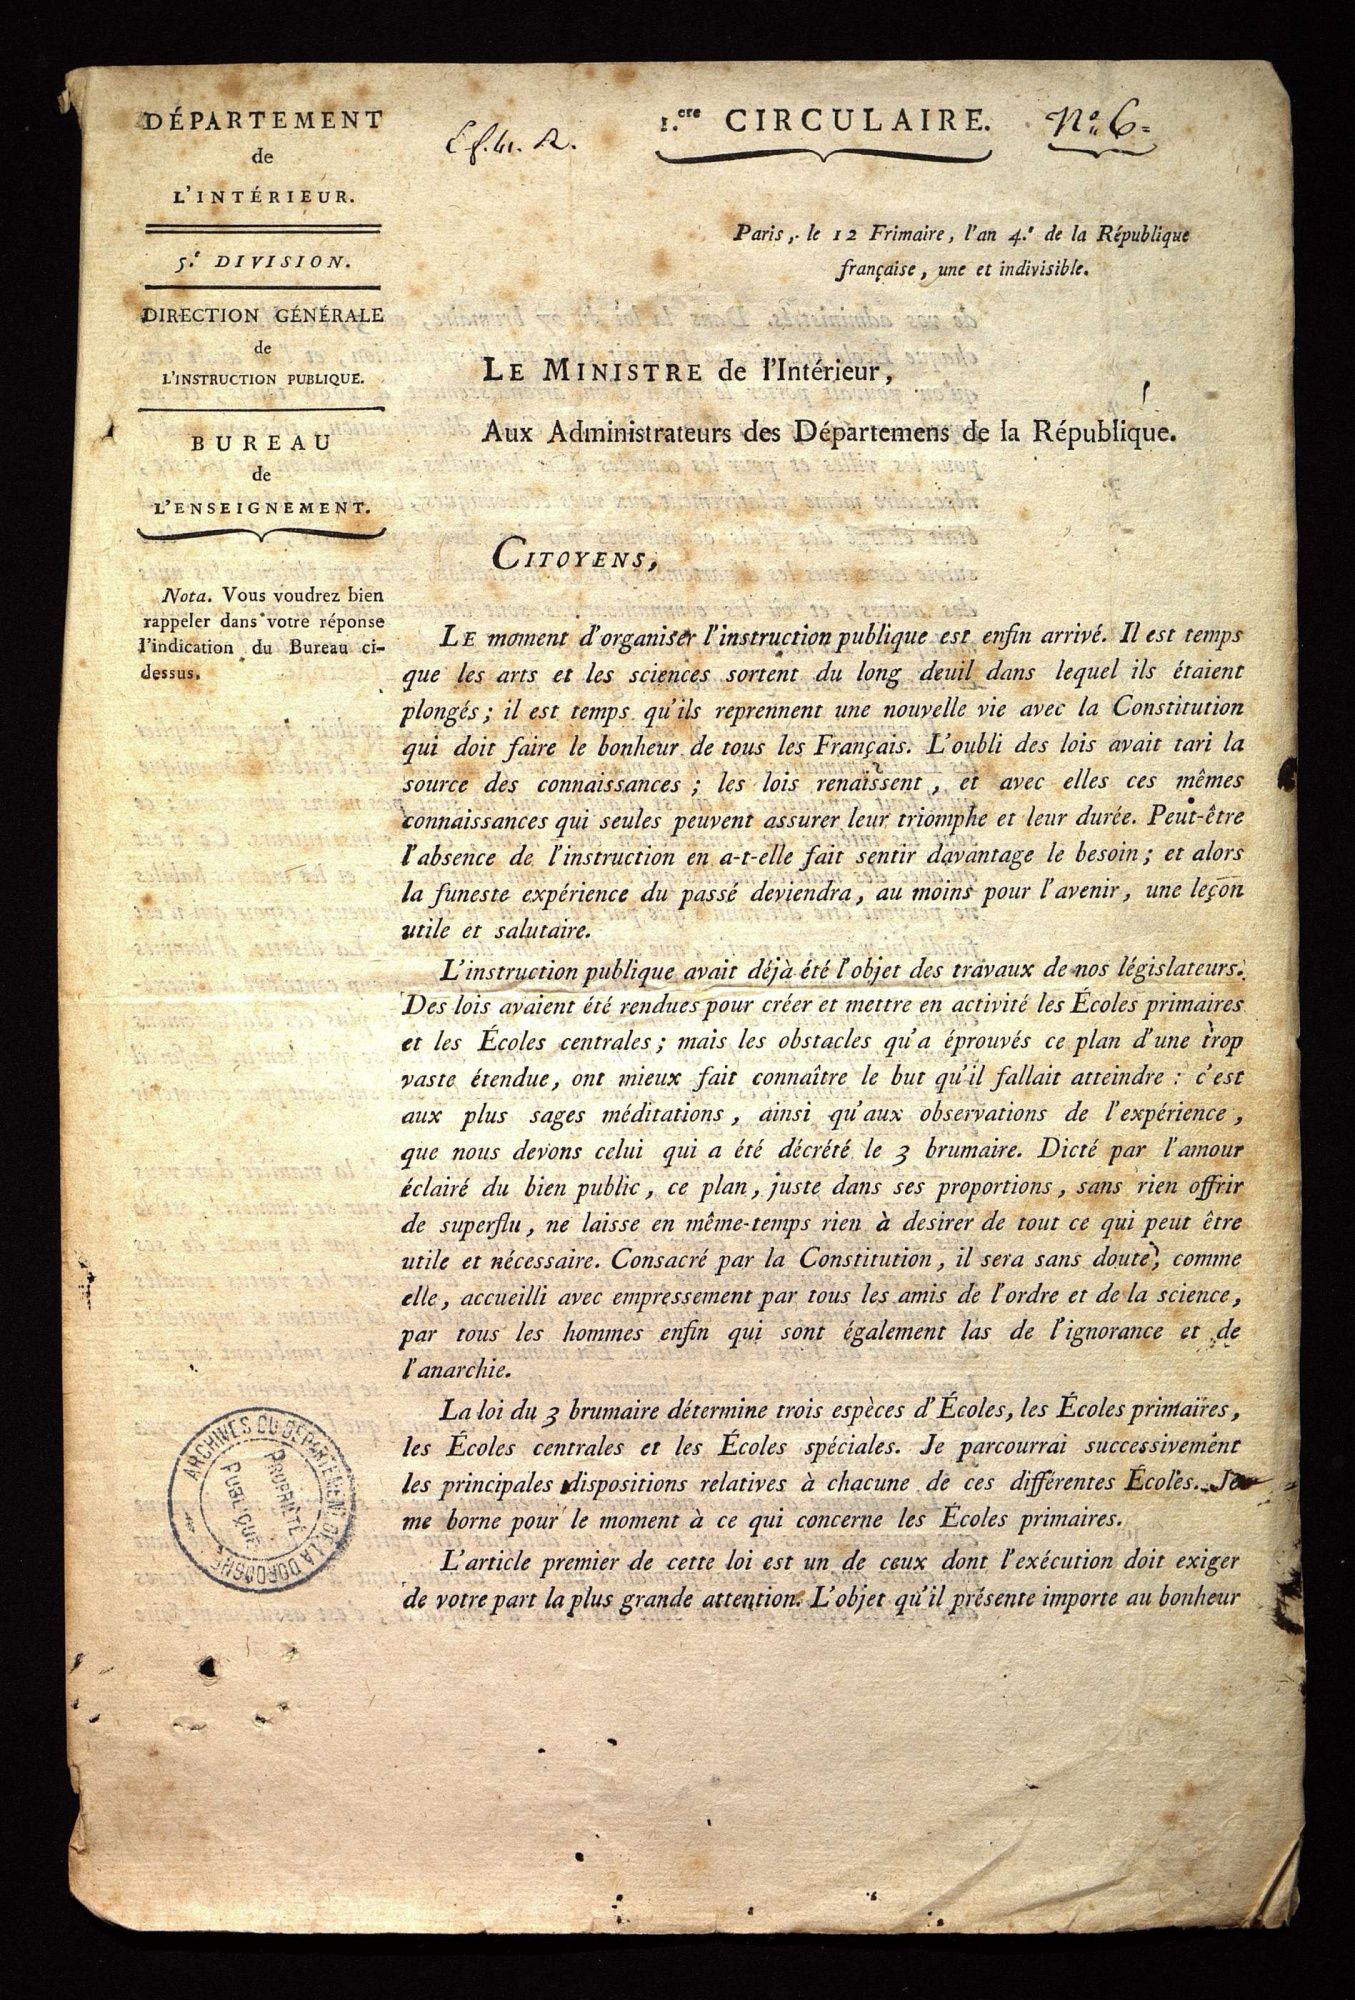 DÉPARTEMENT
de
L'INTÉRIEUR.
5.e DIVISION.
DIRECTION GÉNÉRALE
de
L'INSTRUCTION PUBLIQUE.
BUREAU
de
L'ENSEIGNEMENT.
Nota. Vous voudrez bien
rappeler dans votre réponse
l'indication du Bureau ci-
dessus.
1.ere CIRCULAIRE.
No. 6
Paris, le 12 Frimaire, l'an 4.e de la République
française, une et indivisible.
LE MINISTRE de l'Intérieur,
Aux Administrateurs des Départemens de la République.
CITOYENS,
LE moment d'organiser l'instruction publique est enfin arrivé. Il est temps
que les arts et les sciences sortent du long deuil dans lequel ils étaient
plongés; il est temps qu'ils reprennent une nouvelle vie avec la Constitution
qui doit faire le bonheur de tous les Français. L'oubli des lois avait tari la
source des connaissances; les lois renaissent, et avec elles ces mêmes
connaissances qui seules peuvent assurer leur triomphe et leur durée. Peut-être
l'absence de l'instruction en a-t-elle fait sentir davantage le besoin; et alors
la funeste expérience du passé deviendra, au moins pour l'avenir, une leçon
utile et salutaire.
L'instruction publique avait déjà été l'objet des travaux de nos législateurs.
Des lois avaient été rendues pour créer et mettre en activité les Écoles primaires
et les Écoles centrales; mais les obstacles qu'a éprouvés ce plan d'une trop
vaste étendue, ont mieux fait connaître le but qu'il fallait atteindre: c'est
aux plus sages méditations, ainsi qu'aux observations de l'expérience,
que nous devons celui qui a été décrété le 3 brumaire. Dicté par l'amour
éclairé du bien public, ce plan, juste dans ses proportions, sans rien offrir
de superflu, ne laisse en même-temps rien à desirer de tout ce qui peut être
utile et nécessaire. Consacré par la Constitution, il sera sans doute, comme
elle, accueilli avec empressement par tous les amis de l'ordre et de la science,
par tous les hommes enfin qui sont également las de l'ignorance et de
l'anarchie.
La loi du 3 brumaire détermine trois espèces d'Écoles, les Écoles primaires,
les Écoles centrales et les Écoles spéciales. Je parcourrai successivement
les principales dispositions relatives à chacune de ces différentes Écoles. Je
me borne pour le moment à ce qui concerne les Écoles primaires.
L'article premier de cette loi est un de ceux dont l'exécution doit exiger
de votre part la plus grande attention. L'objet qu'il présente importe au bonheur
ARCHIVES DU DÉPARTEMENT DE LA DORDOGNE
PROPRIÉTÉ
PUBLIQUE